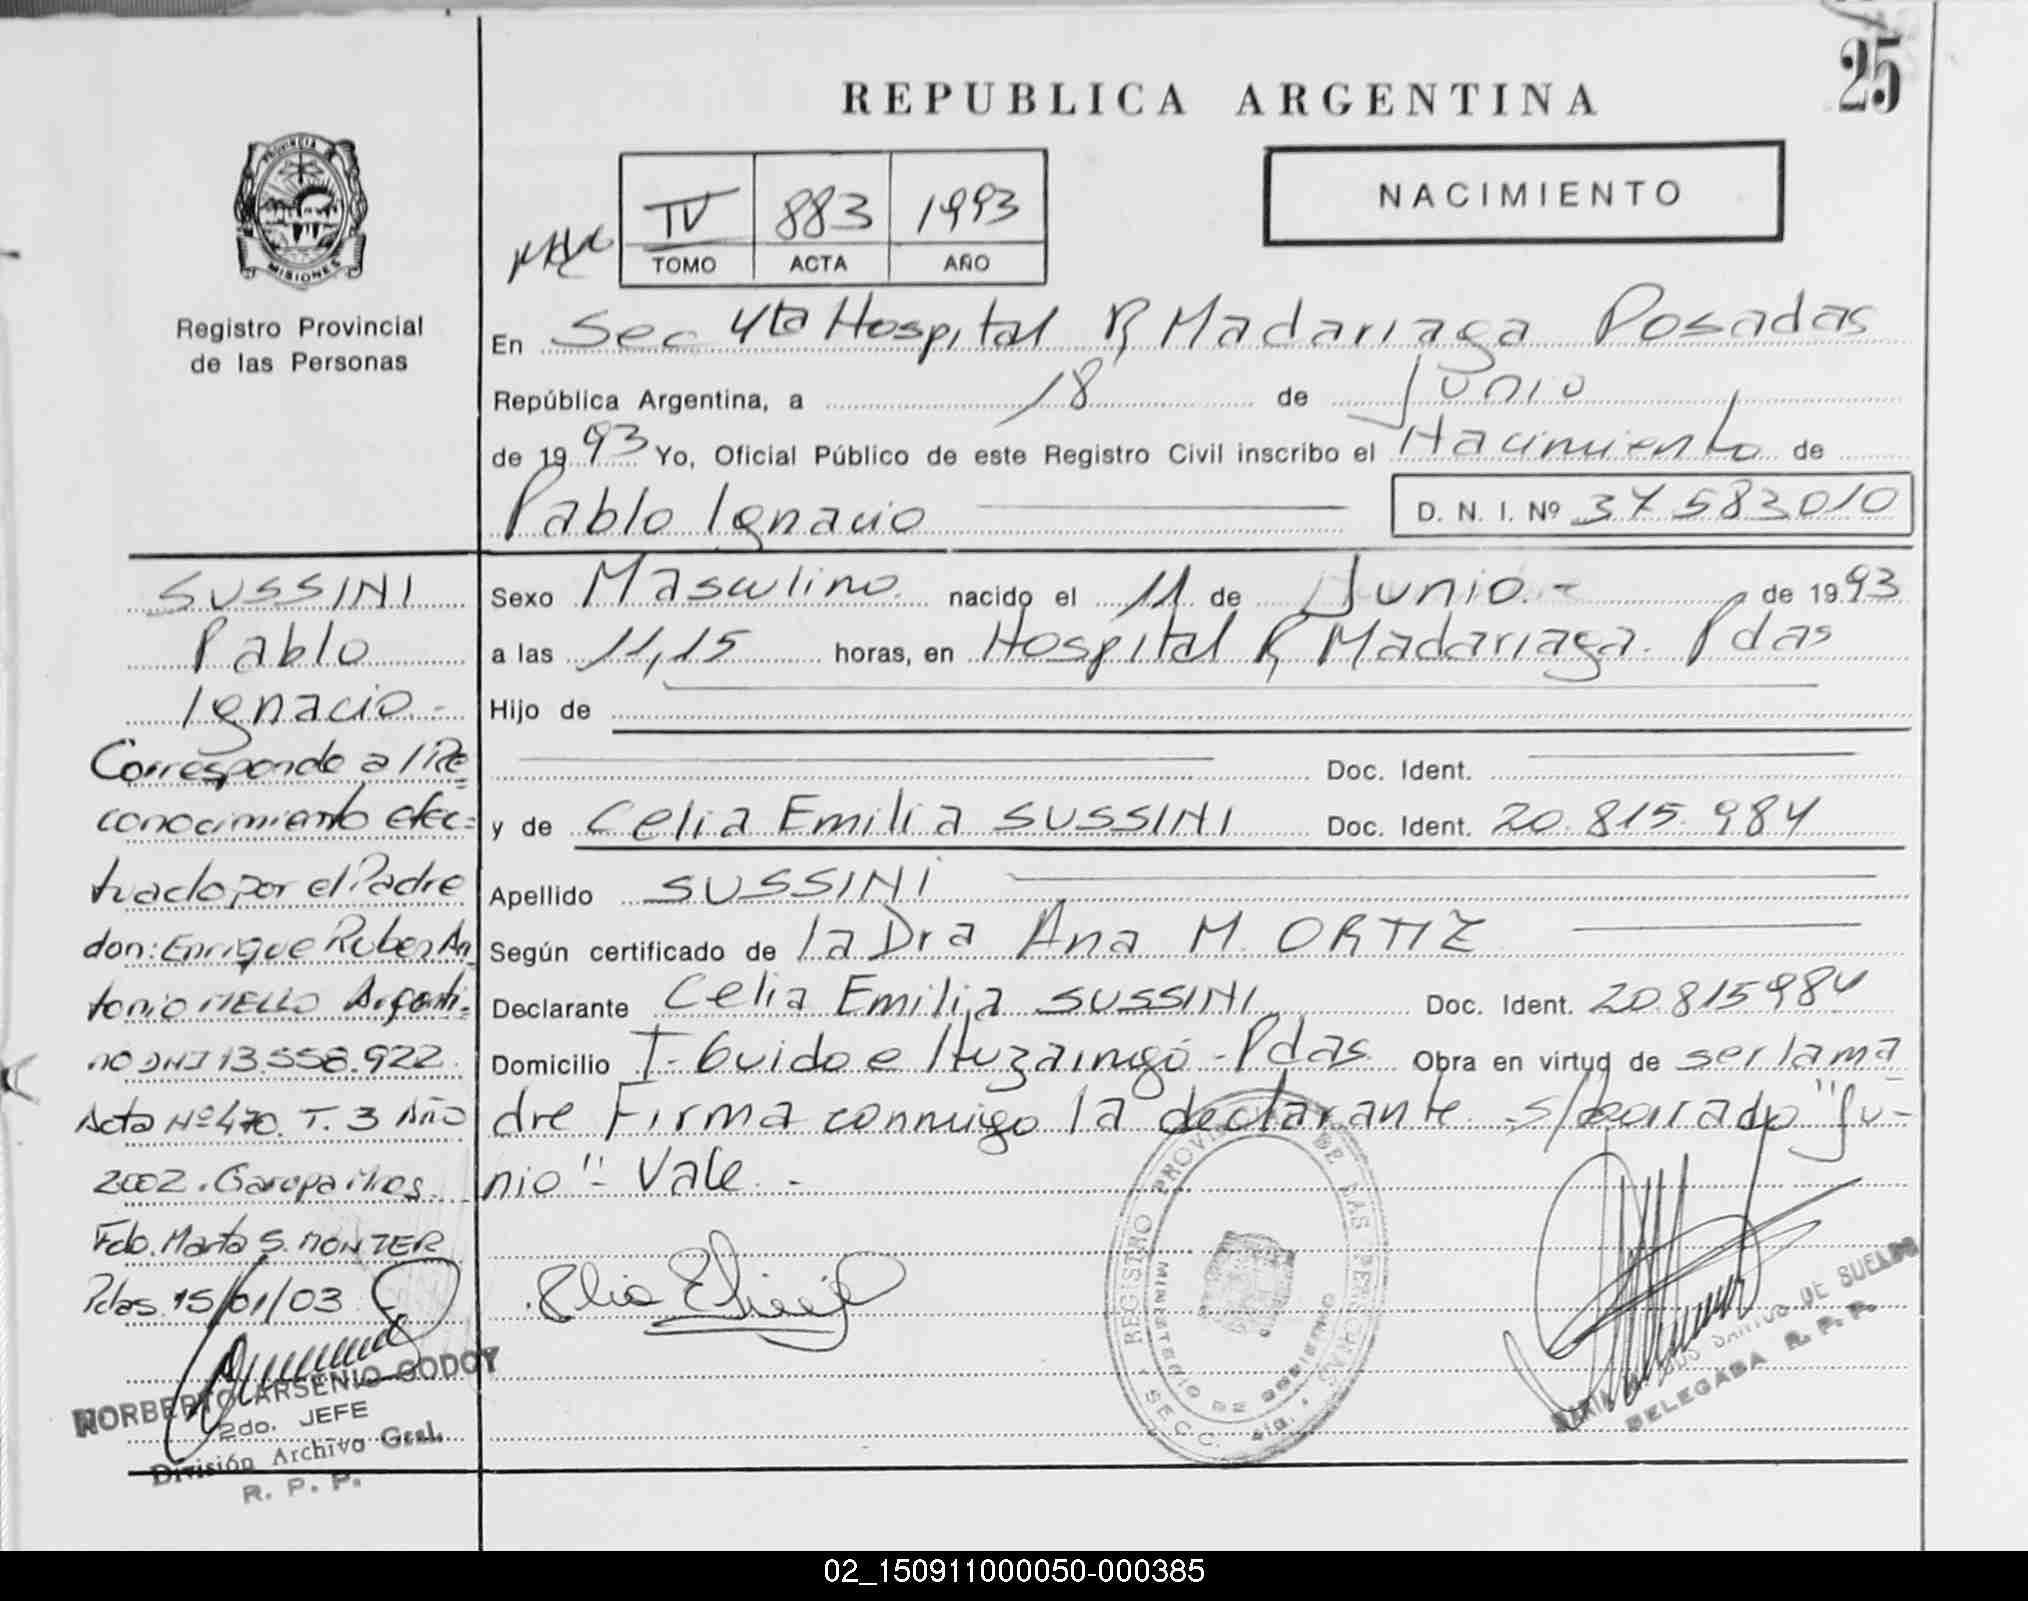 25
REPUBLICA ARGENTINA
NACIMIENTO
TV 883 1993
TOMO ACTA AÑO
PROVINCIA DE
MISIONES
Registro Provincial
de las Personas
En Sec 4ta Hospital R, Madariaga Posadas
República Argentina, a 18 de Junio
de 1993 Yo, Oficial Público de este Registro Civil inscribo el Nacimiento de
Pablo Ignacio D. N. I. Nº 37583010
Sexo Masculino nacido el 11 de Junio.- de 1993
a las 11,15 horas, en Hospital R, Madariaga. Pdas
Hijo de
Doc. Ident.
y de Celia Emilia SUSSINI Doc. Ident. 20.815.984
Apellido SUSSINI
Según certificado de la Dra Ana M. ORTIZ
Declarante Celia Emilia SUSSINI Doc. Ident. 20.815984
Domicilio T. Guido e Ituzaingó - Pdas. Obra en virtud de ser la ma
dre Firma conmigo la declarante. s/borrado "Ju-
nio" - Vale. -
SUSSINI
Pablo
Ignacio.-
Corresponde al Re
conocimiento efec=
tuado por el Padre
don: Enrique Ruben An
tonio MELLO Argenti=
no DNI 13.558.922.
Acta Nº 470. T. 3 Año
2002. Garupa Mnes.
Fdo. Marta S. MONZER
Pdas. 15/01/03
NORBERTO ARSENIO GODOY
2do. JEFE
División Archivo Gral.
R. P. P.
REGISTRO PROVINCIAL DE LAS PERSONAS
MINISTERIO DE GOBIERNO
SECC. 4ta.
SANTOS DE SUELDO
DELEGADA R. P. P.
02_150911000050-000385